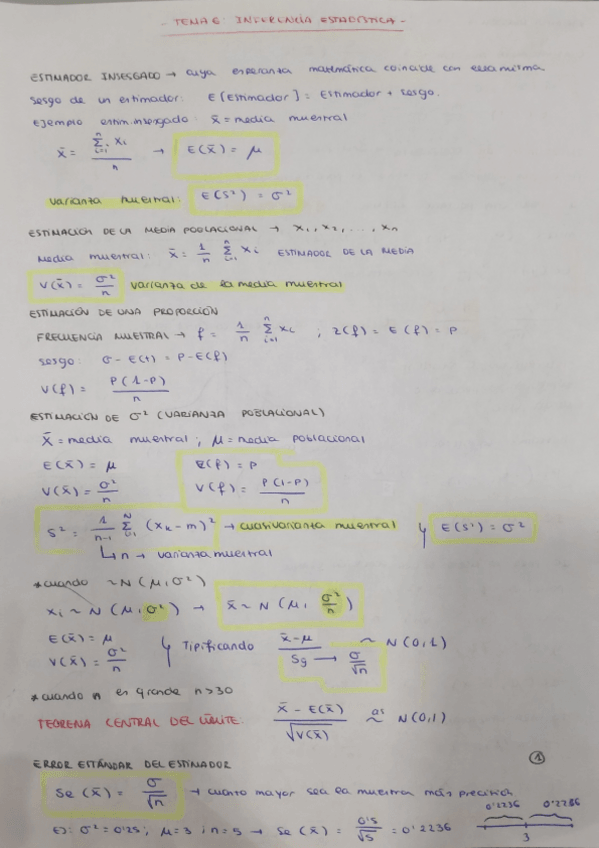 - TEMA 6: INFERENCIA ESTADÍSTICA -
ESTIMADOR INSESGADO → cuya esperanza matemática coincide con ella misma
sesgo de un estimador: E(Estimador) = Estimador + sesgo.
Ejemplo estim. insesgado: x̄ = media muestral
x̄ = Σ(i=1, n) xi / n → E(x̄) = μ
varianza muestral: E(S²) = σ²
ESTIMACIÓN DE LA MEDIA POBLACIONAL → x1, x2, ..., xn
Media muestral: x̄ = 1/n Σ(i=1, n) xi ESTIMADOR DE LA MEDIA
V(x̄) = σ²/n varianza de la media muestral
ESTIMACIÓN DE UNA PROPORCIÓN
FRECUENCIA MUESTRAL → f = 1/n Σ(i=1, n) xi ; E(f) = P
sesgo: = P - E(f)
V(f) = P(1-P)/n
ESTIMACIÓN DE σ² (VARIANZA POBLACIONAL)
x̄ = media muestral; μ = media poblacional
E(x̄) = μ E(f) = P
V(x̄) = σ²/n V(f) = P(1-P)/n
S² = 1/(n-1) Σ(i=1, N) (xk - m)² → cuasivarianza muestral y E(S²) = σ²
↳ n → varianza muestral
* cuando ~ N(μ, σ²)
xi ~ N(μ, σ²) → x̄ ~ N(μ, σ²/n)
E(x̄) = μ
V(x̄) = σ²/n y Tipificando (x̄ - μ)/Sg ~ N(0,1) → σ/√n
* cuando n es grande n > 30
TEOREMA CENTRAL DEL LÍMITE: (x̄ - E(x̄))/√V(x̄) ~ as N(0,1)
①
ERROR ESTÁNDAR DEL ESTIMADOR
Se(x̄) = σ/√n → cuanto mayor sea la muestra más precisión
EJ: σ² = 0'25; μ = 3; n = 5 → Se(x̄) = 0'5/√5 = 0'2236
0'2236 0'2236
3